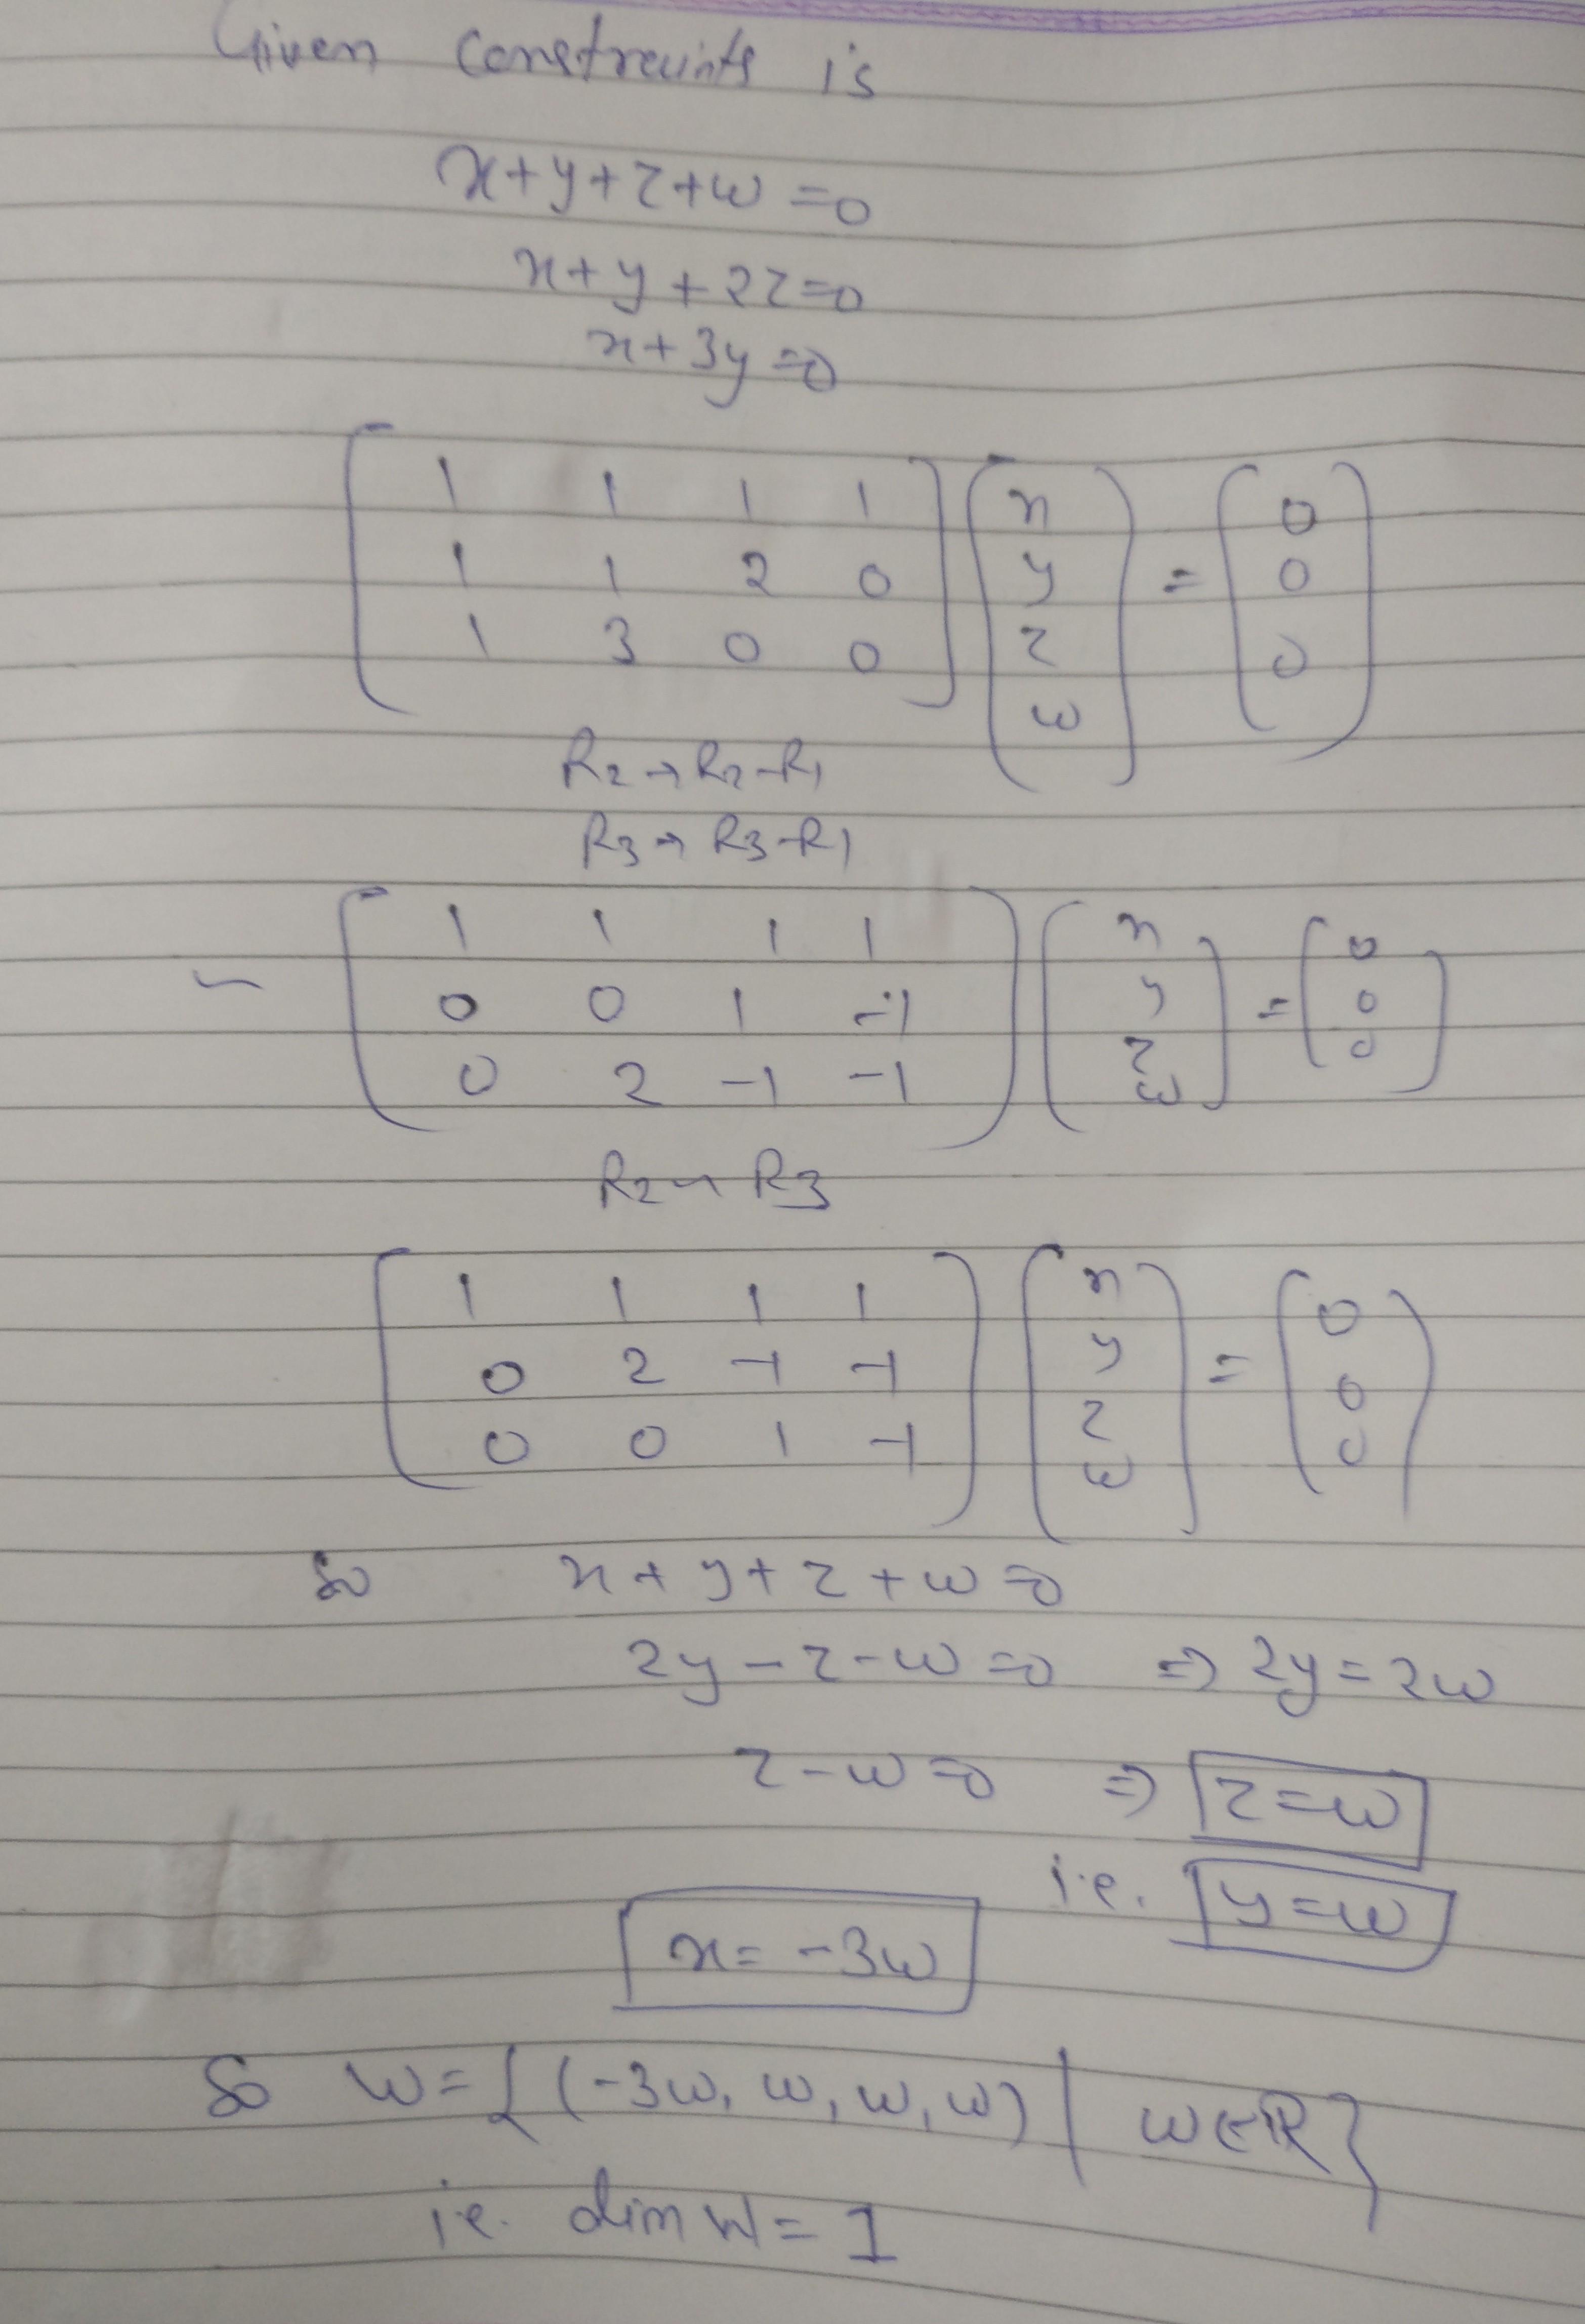 Given constraints is
x+y+z+w=0
x+y+2z=0
x+3y=0
[1 1 1 1
1 1 2 0
1 3 0 0] (x y z w) = (0 0 0)
R2→R2-R1
R3→R3-R1
~ [1 1 1 1
0 0 1 -1
0 2 -1 -1] (x y z w) = (0 0 0)
R2↔R3
[1 1 1 1
0 2 -1 -1
0 0 1 -1] (x y z w) = (0 0 0)
So x+y+z+w=0
2y-z-w=0 ⇒ 2y=2w
z-w=0 ⇒ z=w
i.e. y=w
x=-3w
So W={(-3w, w, w, w) | w∈R}
i.e. dim W = 1